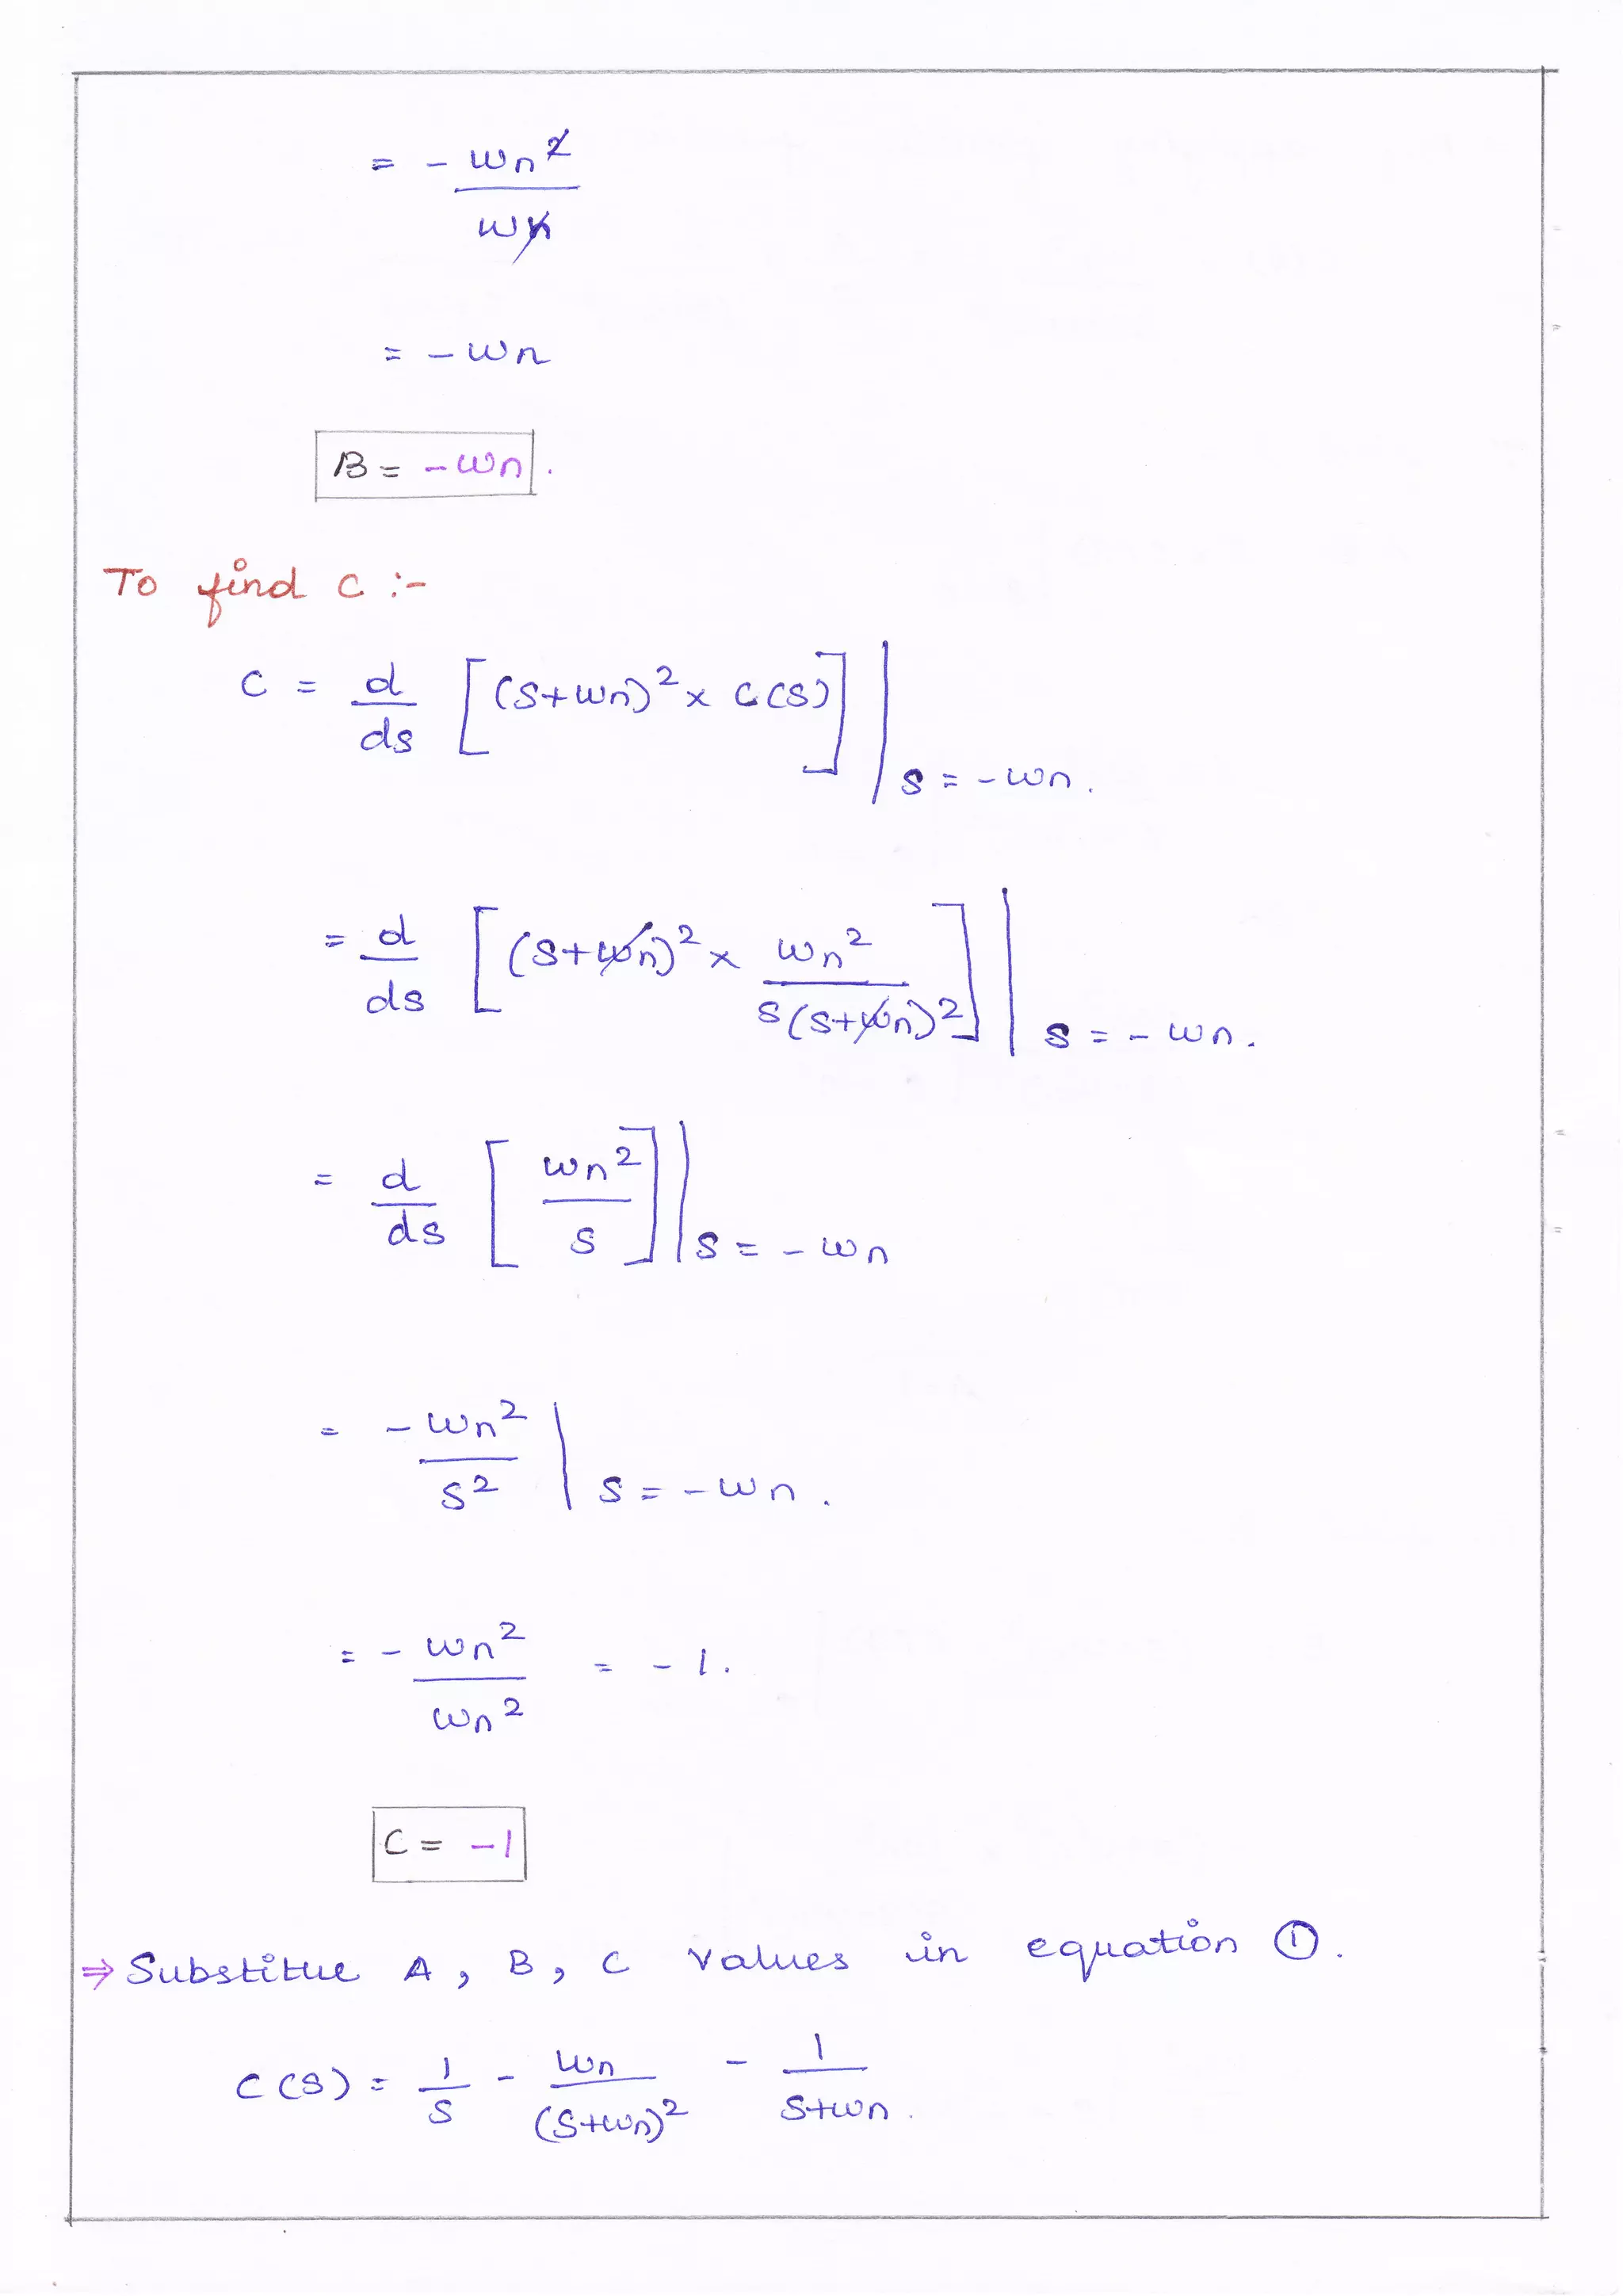 = - ωn²
ωn
= - ωn
B = - ωn .
To find C :-
C = d/ds [(S+ωn)² x C(S)] | S = - ωn .
= d/ds [(S+ωn)² x ωn² / S(S+ωn)²] | S = - ωn .
= d/ds [ωn² / S] | S = - ωn
= - ωn² / S² | S = - ωn .
= - ωn² / ωn² = - 1 .
C = - 1
⇒ Substitue A , B , C values in equation ① .
C (S) = 1/S - ωn / (S+ωn)² - 1 / S+ωn .